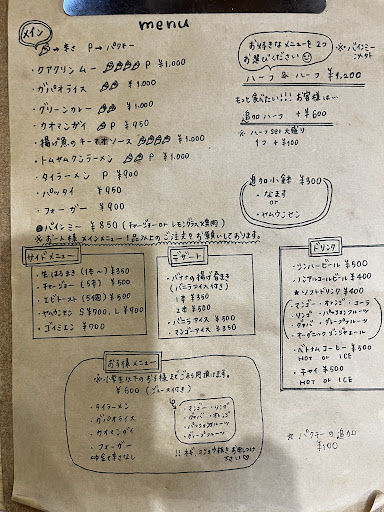 menu
メイン
→辛さ P→パクチー
・クアクリンムー P ¥1,000
・ガパオライス ¥1,000
・グリーンカレー ¥1,000
・カオマンガイ P ¥950
・揚げ魚のキーマオソース ¥1,000
・トムヤムクンラーメン P ¥1,000
・タイラーメン P ¥900
・パッタイ ¥950
・フォーガー ¥900
●バインミー ¥850 (チャーシュー or レモングラス焼肉)
※お一人様メインメニュー1品以上のご注文をお願いしております。
お好きなメニューを2つ
お選びください
※バインミー
ハーフ&ハーフ ¥1,200
もっと食べたい!!! お客様は…
追加ハーフ +¥600
※ハーフset大盛り
1つ +¥100
追加小鉢 ¥300
・なます
or
・ヤムウンセン
サイドメニュー
・生はるまき (1本〜) ¥350
・チャージョー (5本) ¥500
・エビトースト (5個) ¥500
・ヤムウンセン S ¥700, L ¥900
・ゴイミエン ¥700
デザート
・バナナの揚げ春まき
(バニラアイス付き)
1本 ¥350
2本 ¥500
・バニラアイス ¥300
・マンゴーアイス ¥350
ドリンク
・シンハービール ¥500
・ノンアルコールビール ¥400
★ソフトドリンク ¥400
マンゴー・オレンジ・コーラ
・リンゴ・パッションフルーツ
・グァバ・グレープフルーツ
・オーガニックジンジャエール
・ベトナムコーヒー ¥500
HOT or ICE
・チャイ ¥500
HOT or ICE
お子様メニュー
※小学生以下のお子様までご利用頂けます。
¥600 (ジュース付き)
・タイラーメン
・ガパオライス
・カオマンガイ
・フォーガー
・マンゴー・リンゴ
・グァバ・オレンジ
・パッションフルーツ
・グレープフルーツ
※パクチーの追加
¥100